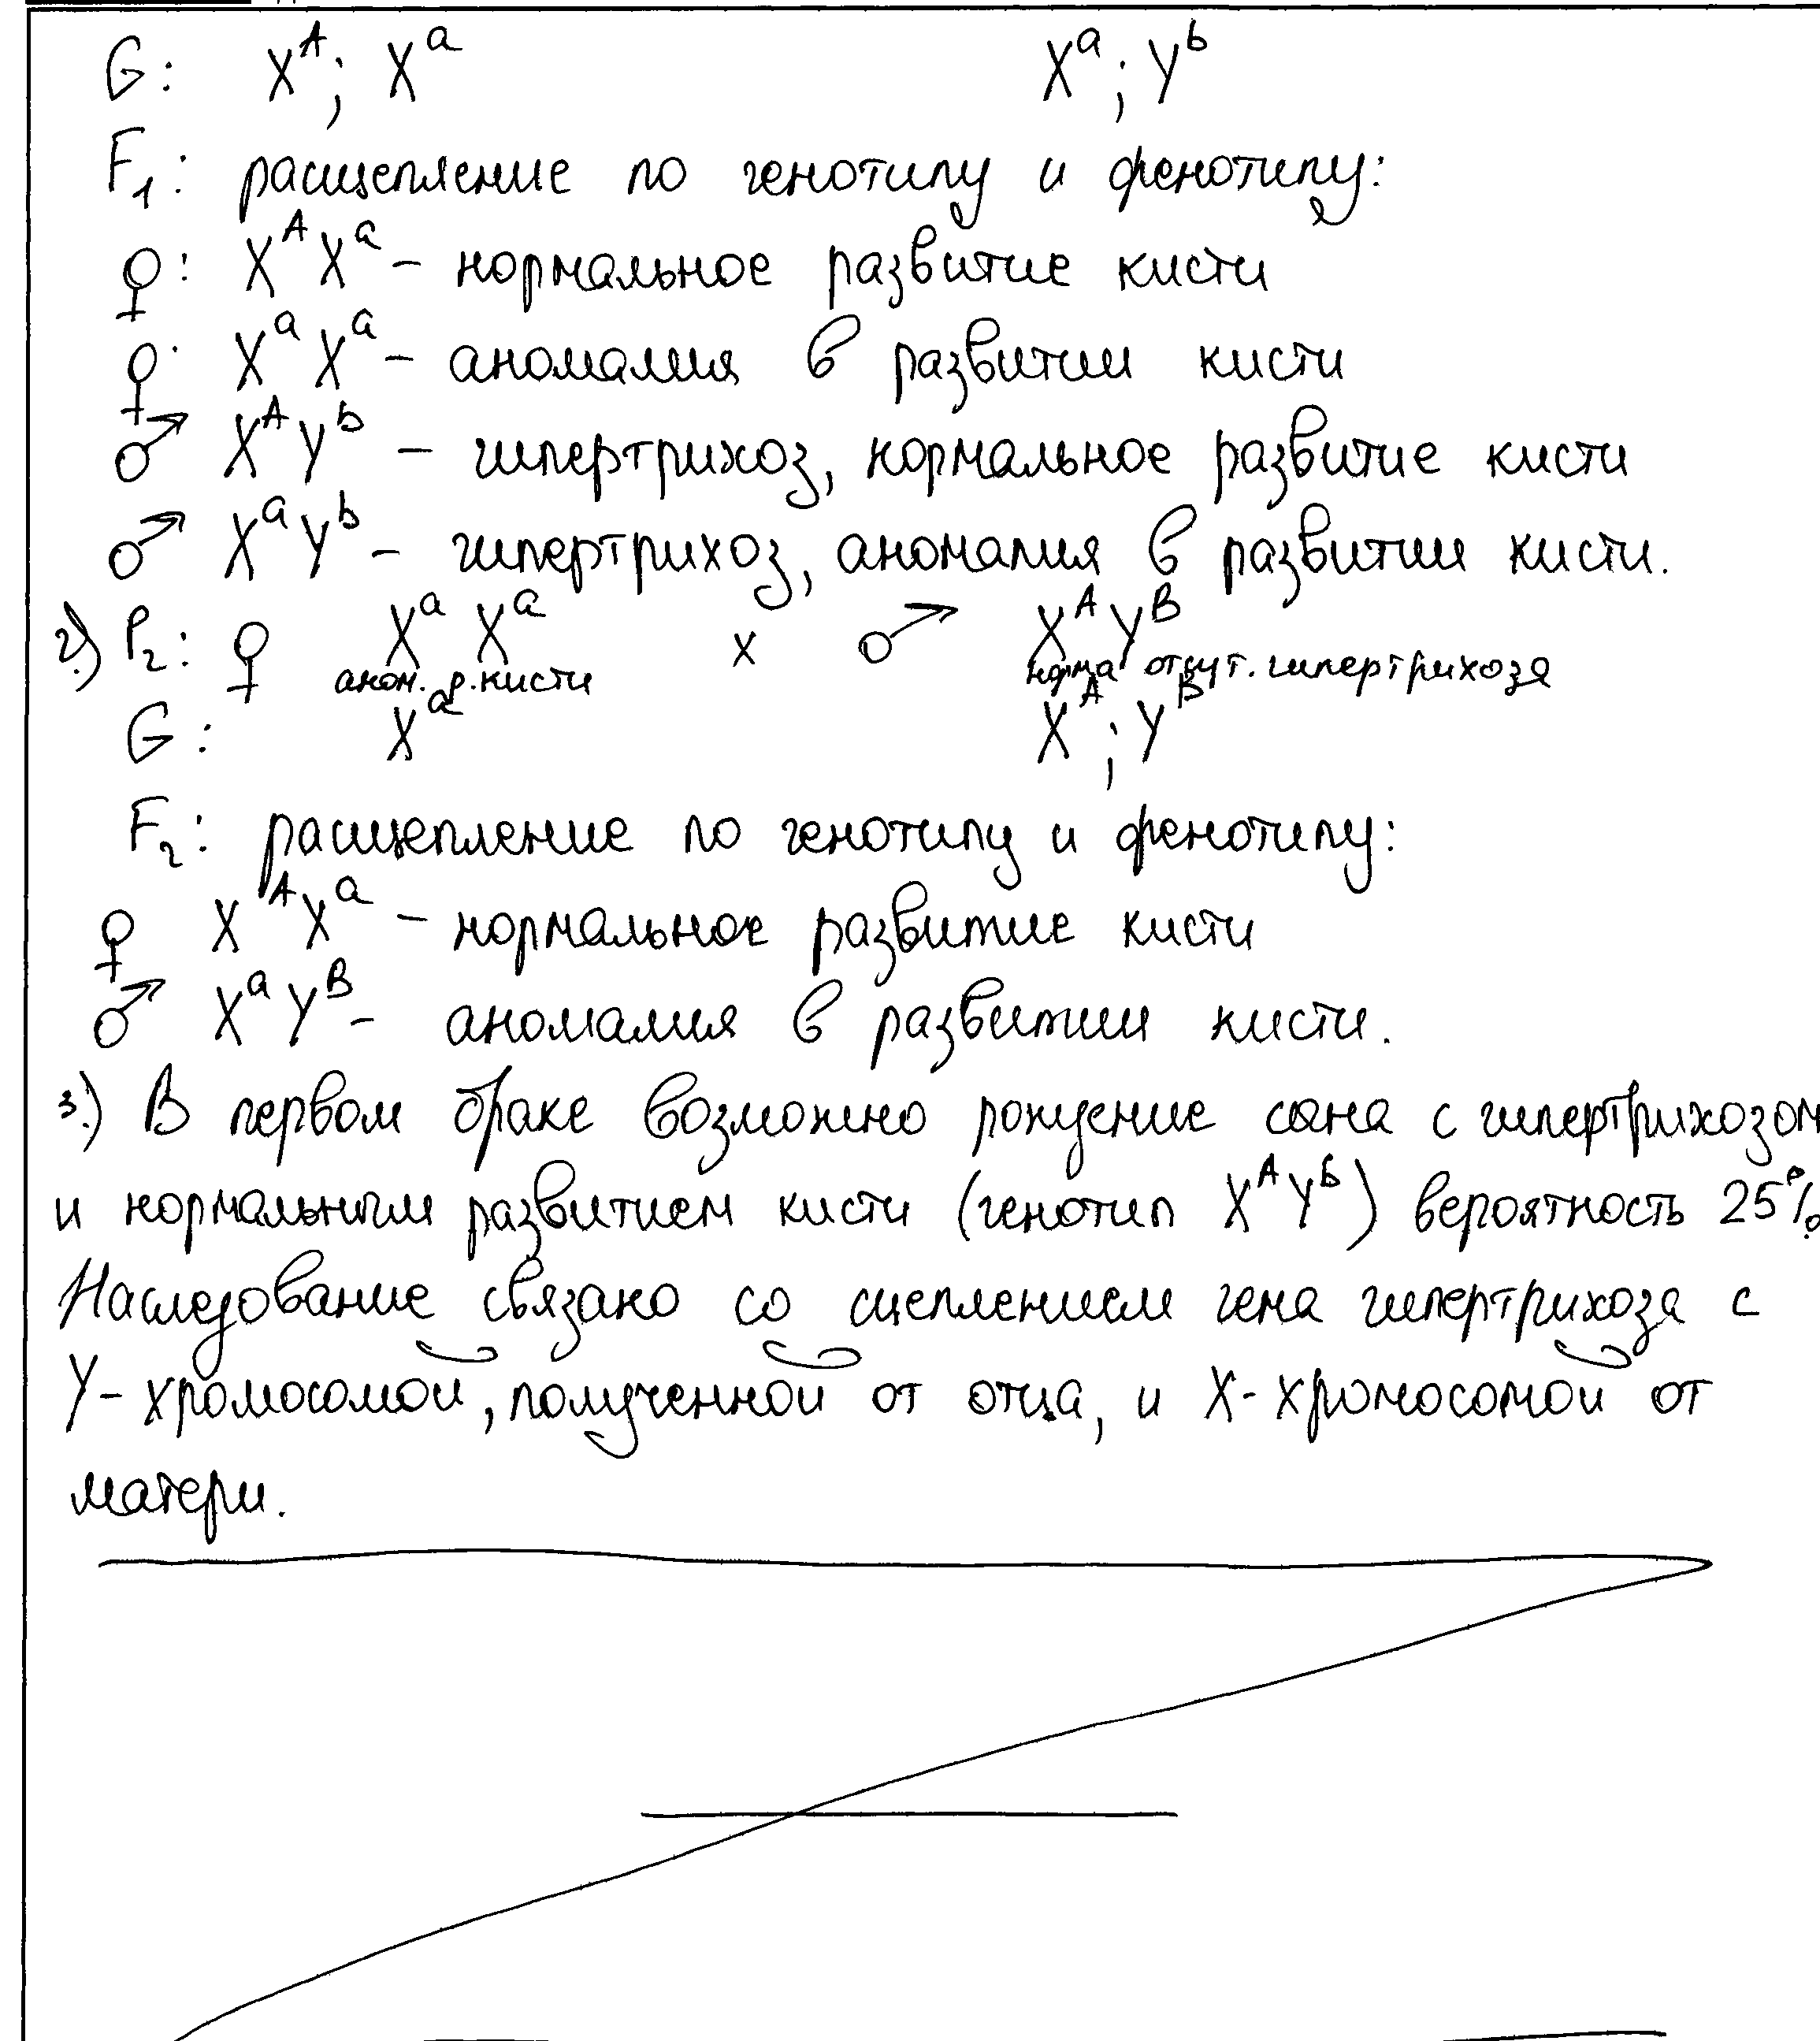 G: X^A; X^a X^a; Y^b
F₁: расщепление по генотипу и фенотипу:
♀: X^A X^a – нормальное развитие кисти
♀: X^a X^a – аномалия в развитии кисти
♂ X^A Y^b – гипертрихоз, нормальное развитие кисти
♂ X^a Y^b – гипертрихоз, аномалия в развитии кисти.
2.) P₂: ♀ X^a X^a x ♂ X^A Y^B
аном. р. кисти норма отсут. гипертрихоза
G: X^a X^A; Y^B
F₂: расщепление по генотипу и фенотипу:
♀ X^A X^a – нормальное развитие кисти
♂ X^a Y^B – аномалия в развитии кисти.
3.) В первом браке возможно рождение сына с гипертрихозом
и нормальным развитием кисти (генотип X^A Y^b) вероятность 25%.
Наследование связано со сцеплением гена гипертрихоза с
Y-хромосомой, полученной от отца, и X-хромосомой от
матери.